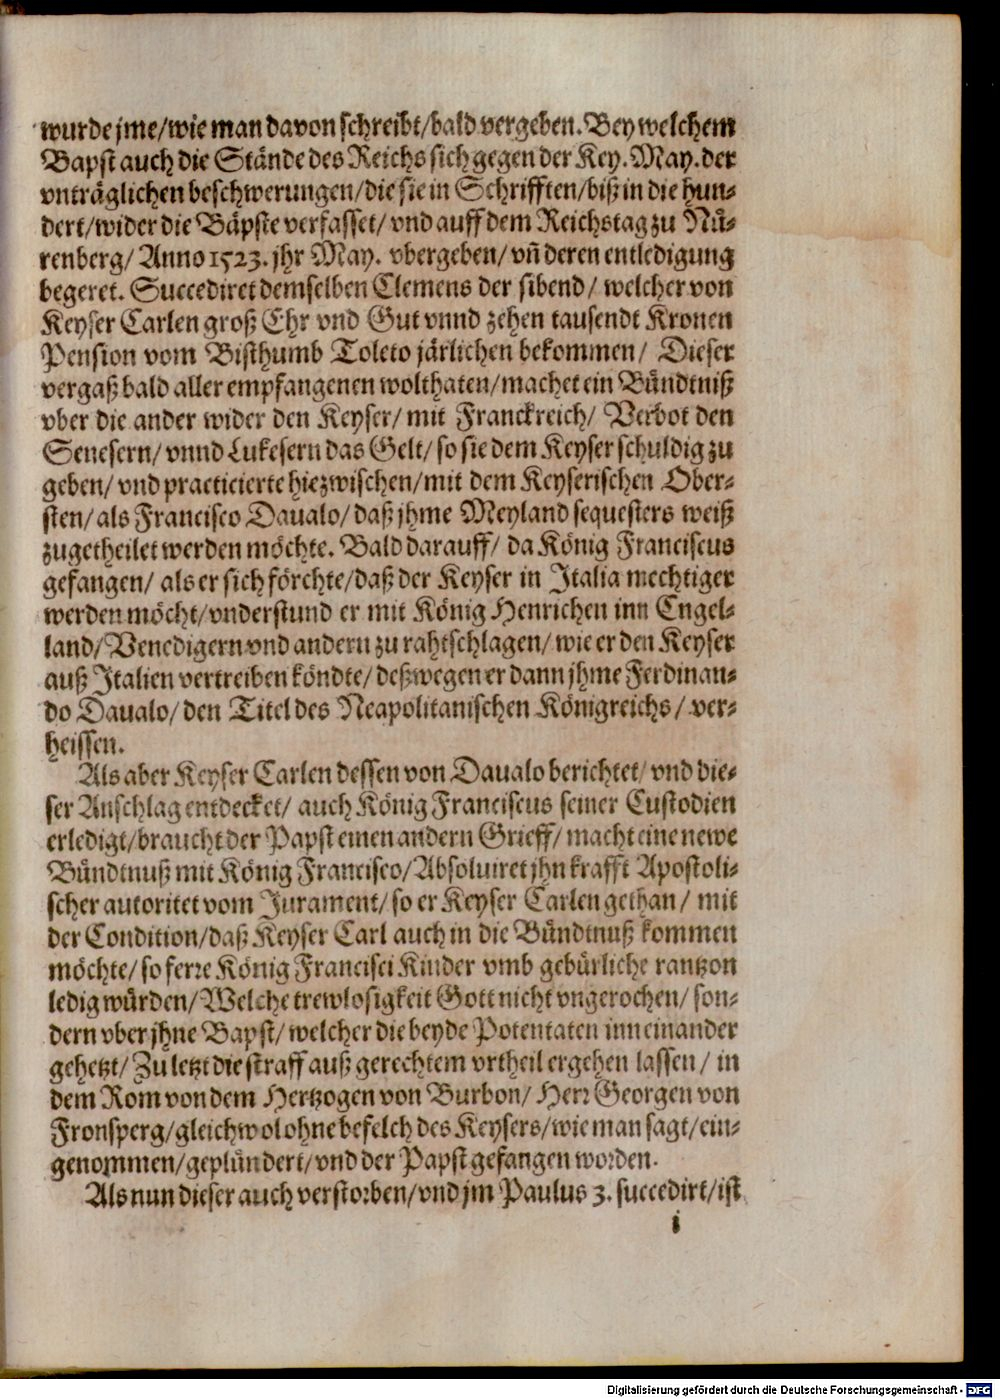 wurde jme/wie man davon schreibt/bald vergeben. Bey welchem
Bapst auch die Stände des Reichs sich gegen der Key. May. der
vnträglichen beschwerungen/die sie in Schrifften/biß in die hun-
dert/wider die Bäpste verfasset/ vnd auff dem Reichstag zu Nü-
renberg/ Anno 1523. jhr May. vbergeben/ vñ deren entledigung
begeret. Succediret demselben Clemens der sibend/ welcher von
Keyser Carlen groß Ehr vnd Gut vnnd zehen tausendt Kronen
Pension vom Bisthumb Toleto järlichen bekommen/ Dieser
vergaß bald aller empfangenen wolthaten/machet ein Bündtniß
vber die ander wider den Keyser/ mit Franckreich/ Verbot den
Senesern/ vnnd Lukesern das Gelt/ so sie dem Keyser schuldig zu
geben/ vnd practicierte hiezwischen/mit dem Keyserischen Ober-
sten/ als Francisco Daualo/ daß jhme Meyland sequesters weiß
zugetheilet werden möchte. Bald darauff/ da König Franciscus
gefangen/ als er sich förchte/daß der Keyser in Italia mechtiger
werden möcht/vnderstund er mit König Henrichen inn Engel-
land/Venedigern vnd andern zu rahtschlagen/ wie er den Keyser
auß Italien vertreiben köndte/ deßwegen er dann jhme Ferdinan-
do Daualo/ den Titel des Neapolitanischen Königreichs/ ver-
heissen.
Als aber Keyser Carlen dessen von Daualo berichtet/ vnd die-
ser Anschlag entdecket/ auch König Franciscus seiner Custodien
erledigt/braucht der Papst einen andern Grieff/ macht eine newe
Bündtnuß mit König Francisco/Absoluiret jhn krafft Apostoli-
scher autoritet vom Jurament/ so er Keyser Carlen gethan/ mit
der Condition/daß Keyser Carl auch in die Bündtnuß kommen
möchte/ so ferre König Francisci Kinder vmb gebürliche rantzon
ledig würden/Welche trewlosigkeit Gott nicht vngerochen/ son-
dern vber jhne Bapst/ welcher die beyde Potentaten inneinander
gehetzt/ Zu letzt die straff auß gerechtem vrtheil ergehen lassen/ in
dem Rom von dem Hertzogen von Burbon/ Herr Georgen von
Fronsperg/gleichwol ohne befelch des Keysers/wie man sagt/ein-
genommen/geplündert/vnd der Papst gefangen worden.
Als nun dieser auch verstorben/vnd jm Paulus 3. succedirt/ist
i
Digitalisierung gefördert durch die Deutsche Forschungsgemeinschaft - DFG